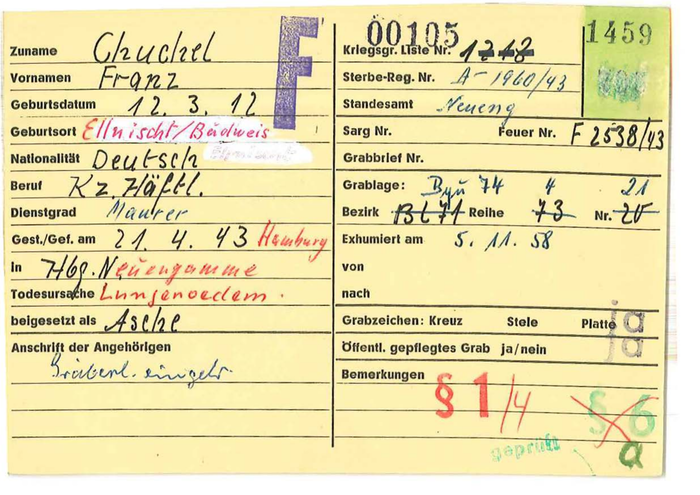 F
00105
1459
Zuname Chuchel
Vornamen Franz
Geburtsdatum 12. 3. 12
Geburtsort Ellnischt/Budweis
Nationalität Deutsch
Beruf Kz. Häftl.
Dienstgrad Maurer
Gest./Gef. am 21. 4. 43 Hamburg
in Hbg. Neuengamme
Todesursache Lungenoedem.
beigesetzt als Asche
Anschrift der Angehörigen
Gräberl. eingetr.
Kriegsgr. Liste Nr. 1248
Sterbe-Reg. Nr. A-1960/43
Standesamt Neueng
Sarg Nr. Feuer Nr. F 2538/43
Grabbrief Nr.
Grablage: 74 4 21
Bezirk Bl 71 Reihe 73 Nr. 20
Exhumiert am 5. 11. 58
von
nach
Grabzeichen: Kreuz Stele Platte ja
Öffentl. gepflegtes Grab ja/nein ja
Bemerkungen
§ 1/4
§ 6
geprüft
a